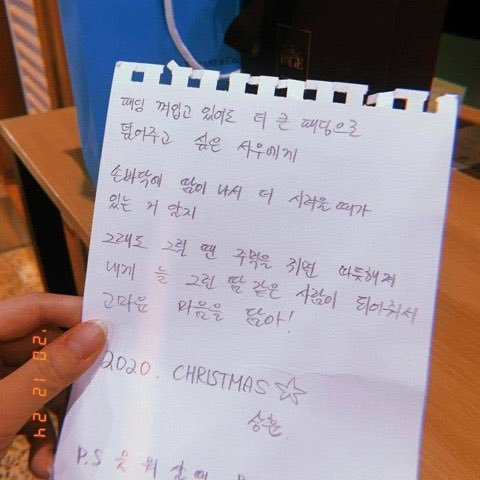 패딩 껴입고 있어도 더 큰 패딩으로
덮어주고 싶은 서우에게
손바닥에 땀이 나서 더 시려울 때가
있는 거 알지
그래도 그럴 땐 주먹을 쥐면 따뜻해져
내게 늘 그런 땀 같은 사람이 되어줘서
고마운 마음을 담아!
2020. CHRISTMAS ☆
승훈
P.S 옷
'20 12 24